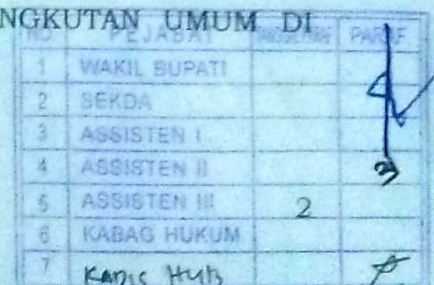 NGKUTAN UMUM DI
NO. PEJABAT PARAF
1 WAKIL BUPATI
2 SEKDA
3 ASSISTEN I
4 ASSISTEN II
5 ASSISTEN III 2
6 KABAG HUKUM
7 Kadis Hub